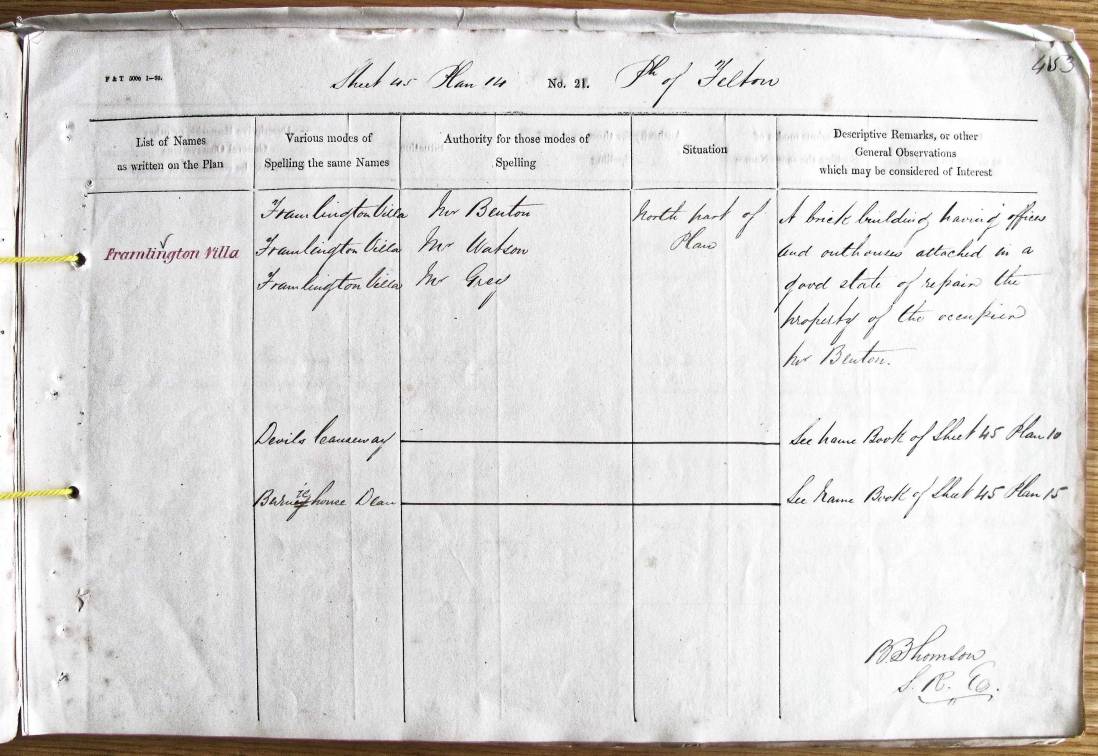 453
F & T 5000 1—59.
Sheet 45 Plan 14 No. 21. Ph of Felton
List of Names
as written on the Plan
Various modes of
Spelling the same Names
Authority for those modes of
Spelling
Situation
Descriptive Remarks, or other
General Observations
which may be considered of Interest
Framlington Villa
Framlington Villa Mr Benton
Framlington Villa Mr Watson
Framlington Villa Mr Grey
North part of
Plan
A brick building having offices
and outhouses attached in a
good state of repair the
property of the occupier
Mr Benton.
Devils Causeway See Name Book of Sheet 45 Plan 10
house Dean See Name Book of Sheet 45 Plan 15
B Thomson
S. R. E.